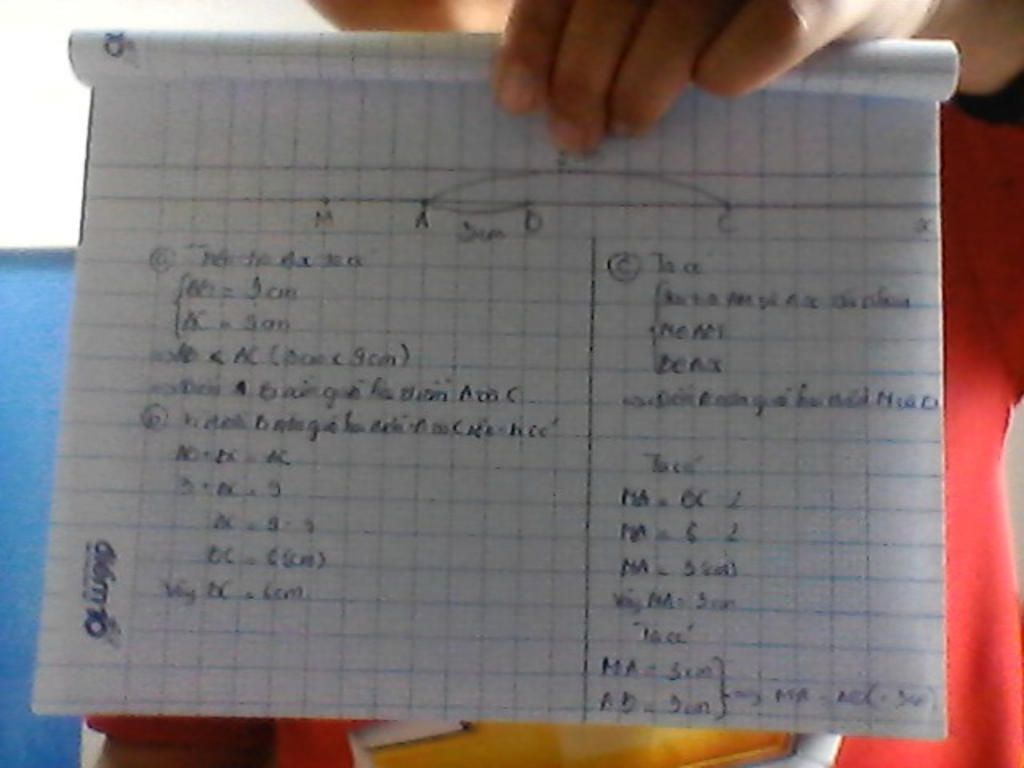 M A D C x
3cm
a Trên tia Ax ta có
AD = 3cm
AC = 9cm
=> AD < AC (3cm < 9cm)
=> Điểm D nằm giữa hai điểm A và C
b Vì điểm D nằm giữa hai điểm A và C nên ta có
AD + DC = AC
3 + DC = 9
DC = 9 - 3
DC = 6 (cm)
Vậy DC = 6cm
c Ta có
M ∈ AM
D ∈ Ax
=> Điểm A nằm giữa hai điểm M và D
Ta có
MA = DC : 2
MA = 6 : 2
MA = 3 (cm)
Vậy MA = 3cm
Ta có
MA = 3cm
AD = 3cm => MA = AD (= 3cm)
điểm 10